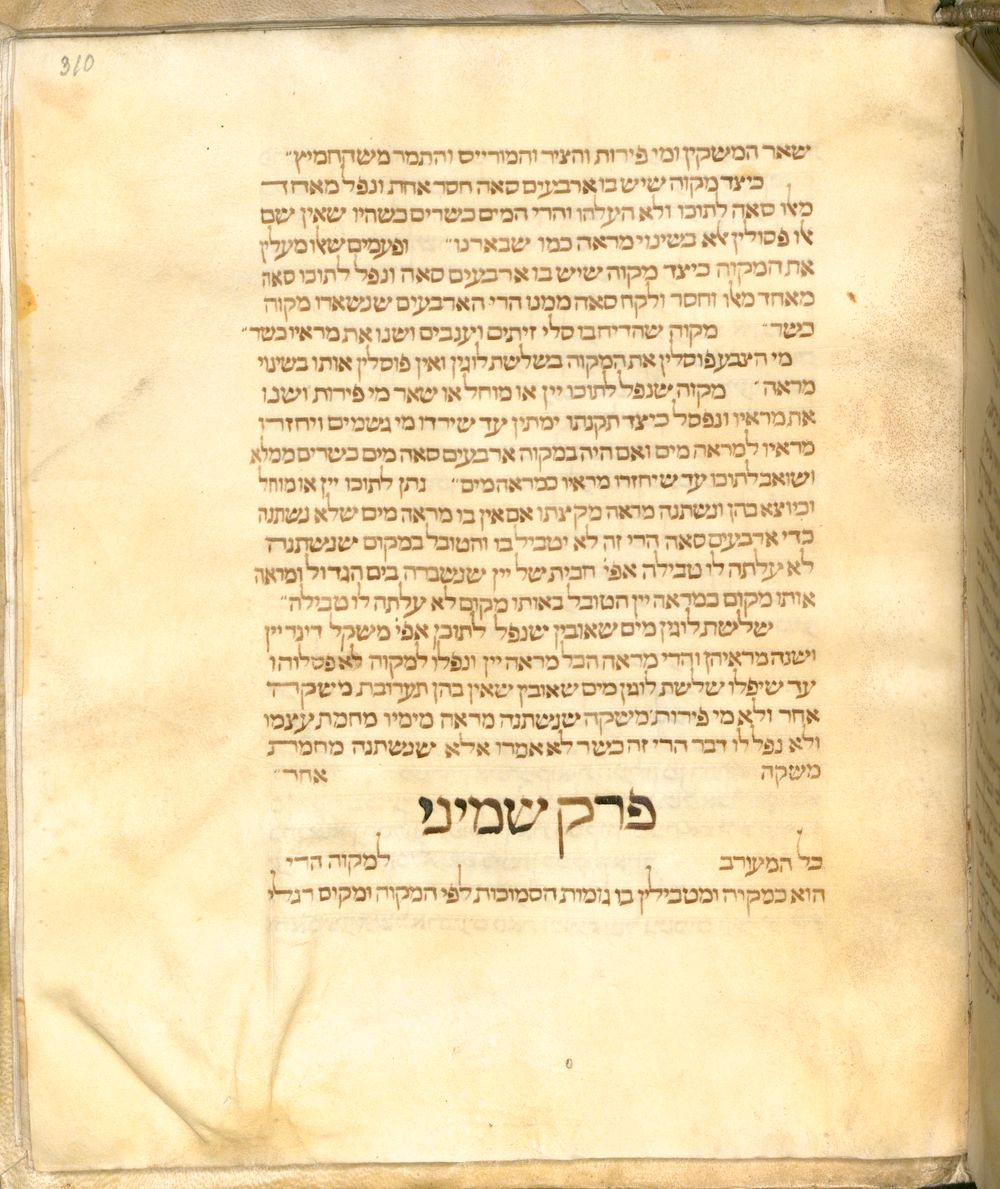 310
שאר המשקין ומי פירות והציר והמורייס והתמר משהחמיץ״
כיצד מקוה שיש בו ארבעים סאה חסר אחת ונפל מאחד
מאלו סאה לתוכו ולא העלהו והרי המים כשרים כשהיו שאין שם
אלו פסולין אלא בשינוי מראה כמו שבארנו״ ופעמים שאלו מעלין
את המקוה כיצד מקוה שיש בו ארבעים סאה ונפל לתוכו סאה
מאחד מאלו וחסר ולקח סאה ממנו הרי הארבעים שנשארו מקוה
כשר״ מקוה שהדיחבו סלי זיתים ויענבים ושנו את מראיו כשר״
מי הצבע פוסלין את המקוה בשלשת לוגין ואין פוסלין אותו בשינוי
מראה״ מקוה שנפל לתוכו יין או מוחל או שאר מי פירות ושנו
את מראיו ונפסל כיצד תקנתו ימתין עד שירדו מי גשמים ויחזרו
מראיו למראה מים ואם היה במקוה ארבעים סאה מים כשרים ממלא
ושואב לתוכו עד שיחזרו מראיו כמראה מים״ נתן לתוכו יין או מוחל
וכיוצא בהן ונשתנה מראה מקצתו אם אין בו מראה מים שלא נשתנה
כדי ארבעים סאה הרי זה לא יטביל בו והטובל במקום שנשתנה
לא עלתה לו טבילה אפי׳ חבית של יין שנשברה בים הגדול ומראה
אותו מקום כמראה יין הטובל באותו מקום לא עלתה לו טבילה״
שלישת לוגין מים שאובין שנפל לתוכן אפי׳ משקל דינר יין
ושנה מראיהן והרי מראה הכל מראה יין ונפלו למקוה לא פסלוהו
עד שיפלו שלשת לוגין מים שאובין שאין בהן תערובת משקה
אחר ולא מי פירות׳ משקה שנשתנה מראה מימיו מחמת עצמו
ולא נפל לו דבר הרי זה כשר לא אמרו אלא שנשתנה מחמת
משקה אחר״
פרק שמיני
כל המעורב למקוה הרי
הוא כמקוה ומטבילין בו גומות הסמוכות לפי המקוה ומקום רגלי